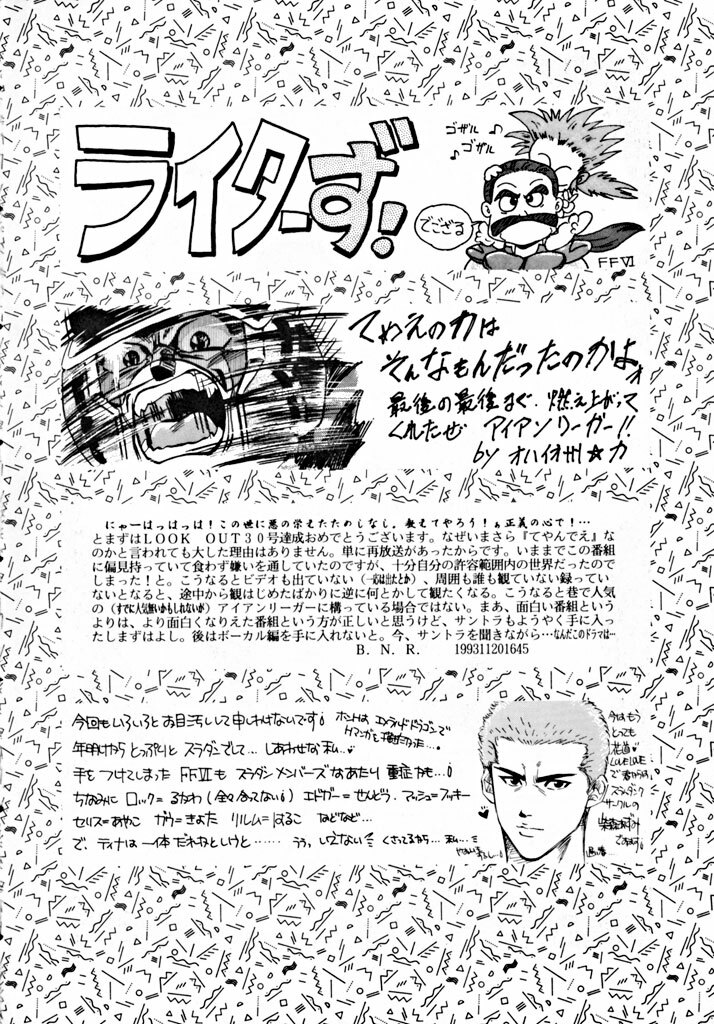 ライターず!
ゴザル♪
♪ゴザル
でござる
FFⅥ
てめえの力は
そんなもんだったのかよォ
最後の最後まで、燃え上がって
くれたぜ アイアンリーガー!!
by オハイオ州☆力
にゃーはっはっは!この世に悪の栄えたためしなし。教えてやろう!ぁ正義の心で!…
とまずはLOOK OUT30号達成おめでとうございます。なぜいまさら『てやんでえ』な
のかと言われても大した理由はありません。単に再放送があったからです。いままでこの番組
に偏見持っていて食わず嫌いを通していたのですが、十分自分の許容範囲内の世界だったので
しまった!と。こうなるとビデオも出ていない(一応出たとか)、周囲も誰も観ていない録ってい
ないとなると、途中から観はじめたばかりに逆に何とかして観たくなる。こうなると巷で人気
の(すでに人気無いかもしれないが)アイアンリーガーに構っている場合ではない。まあ、面白い番組という
よりは、より面白くなりえた番組という方が正しいと思うけど、サントラもようやく手に入っ
たしまずはよし。後はボーカル編を手に入れないと。今、サントラを聞きながら…なんだこのドラマは…
B.N.R. 199311201645
今回もいろいろとお目汚しで申しわけないです!
年明けから とっぷりと スラダンでして… しあわせな私…
手をつけてしまった FFⅥも スラダンメンバーズなあたり 重症かも…!
ちなみに ロック=るかわ(全々合ってない!) エドガー=せんどう. マッシュ=フッキー
セリス=あやこ ガウ=きよた リルム=はるこ などなど…
で、ティナは一体だれなというと…… うぅ、いえない くさってるから…私…
今はもう
とっても
花道
LOVE LOVE